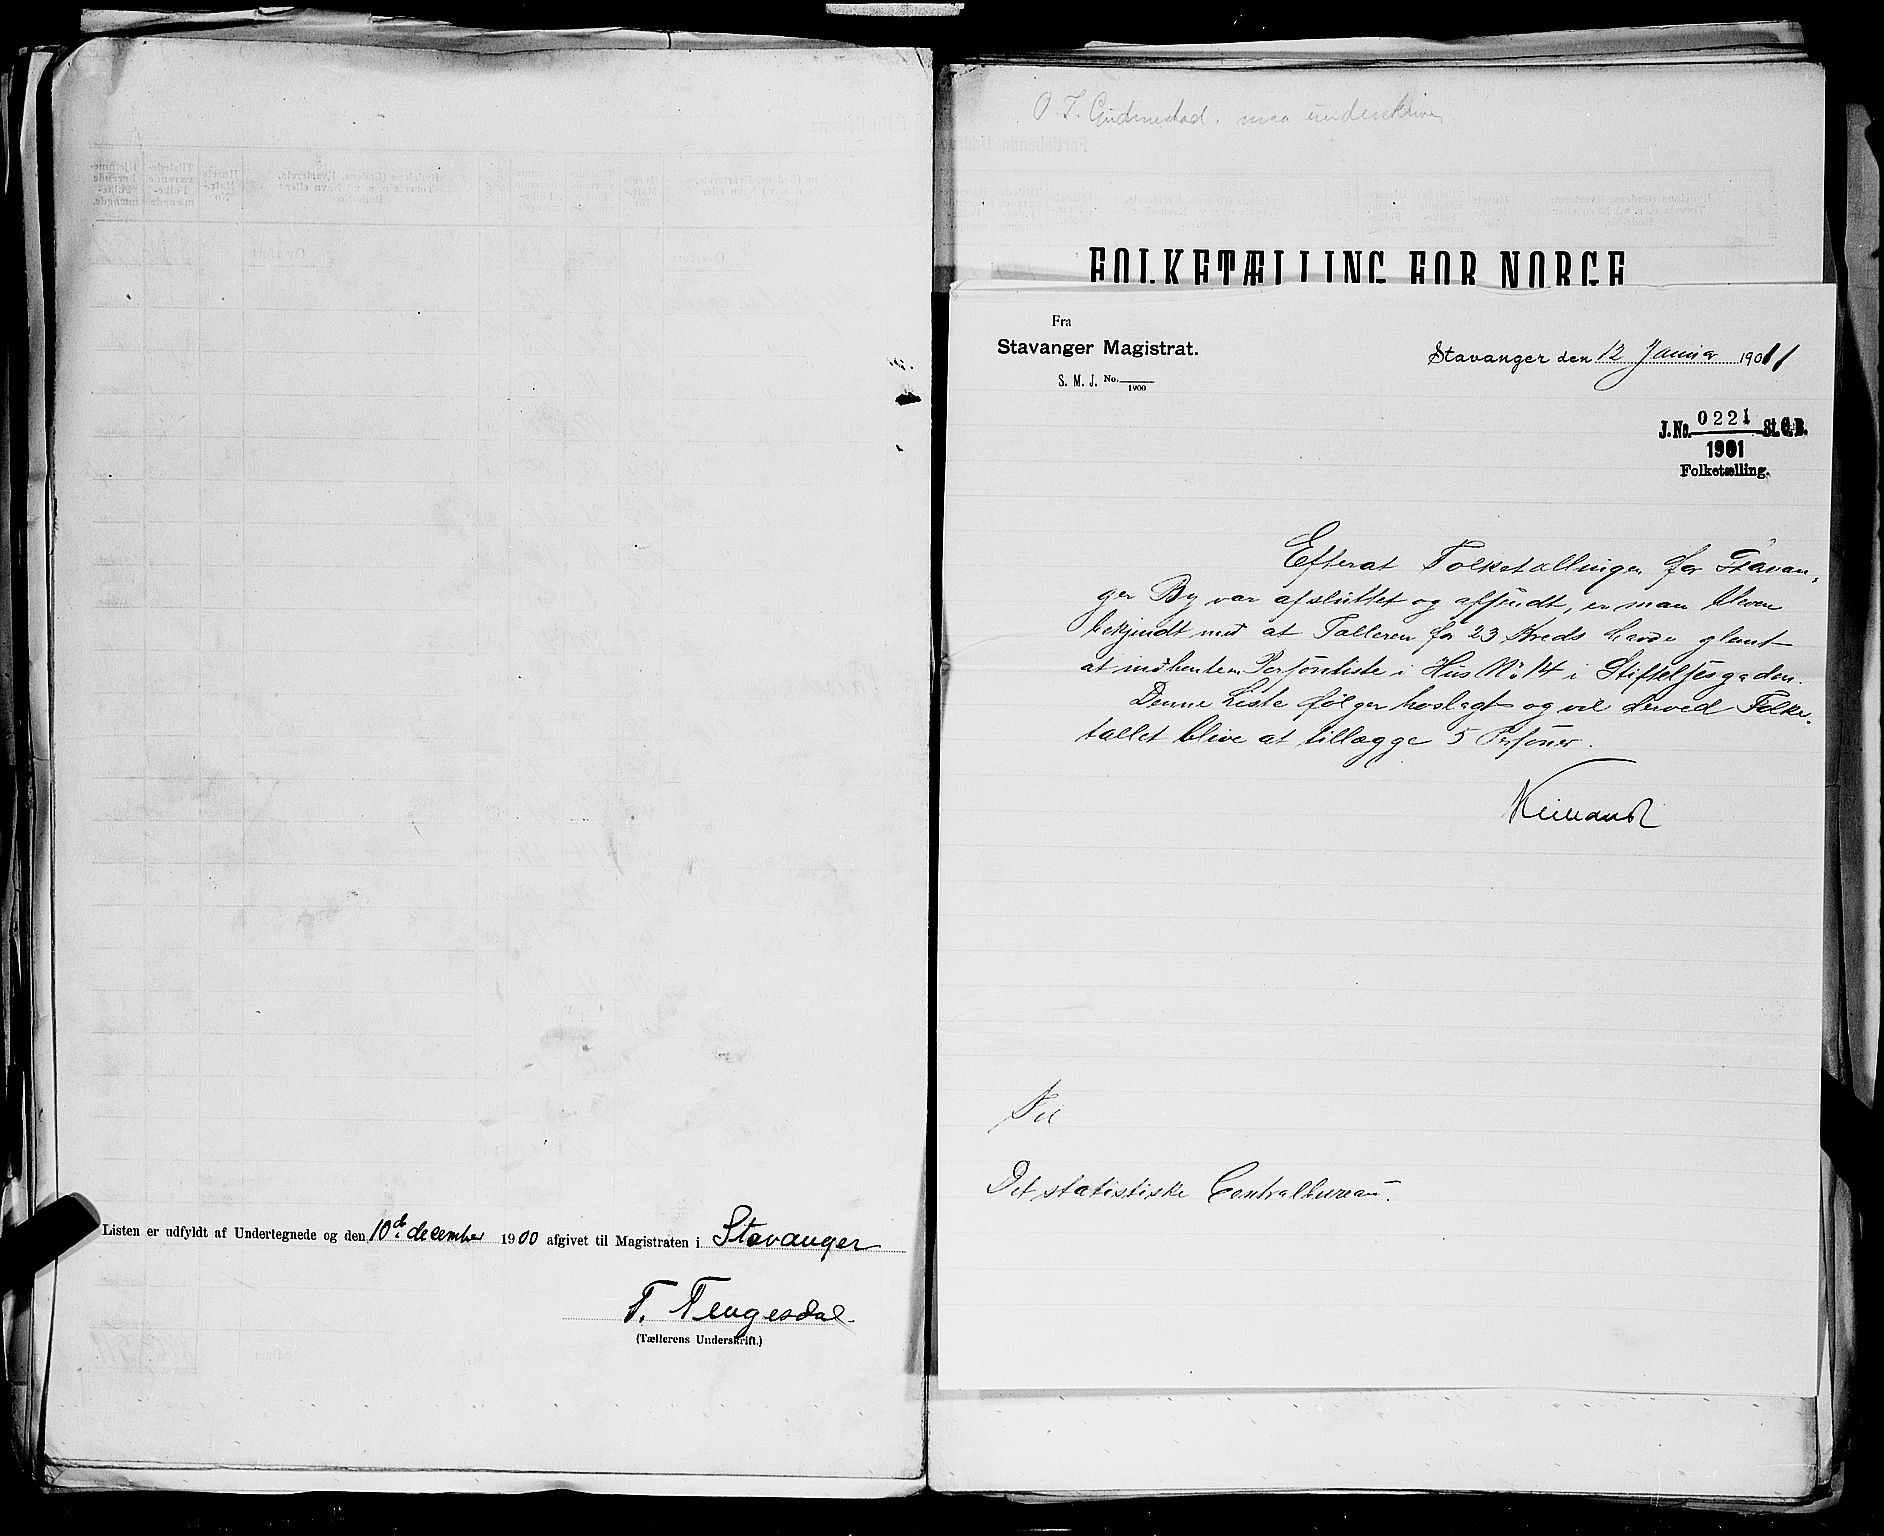 Listen er udfyldt af Undertegnede og den 10de december 1900 afgivet til Magistraten i Stavanger
T. Tengesdal
(Tællerens Underskrift.)
O. T. Gudmestad. maa underskrive
FOLKETÆLLING FOR NORGE
Fra
Stavanger Magistrat.
S. M. J. No.
1900
Stavanger den 12 Januar 1901
J. No. 0221 St. C. B.
1901
Folketælling.
Efterat Folketællingen for Stavan-
ger By var afsluttet og affendt, er man bleven
bekjendt med at Tælleren for 23 Kreds havde glemt
at indhente en Personliste i Hus No 14 i Stiftelsesgaden.
Denne Liste følger hoslagt og vil derved Folke-
tallet blive at tillægge 5 Personer.
Kielland
Til
Det statistiske Centralbureau.